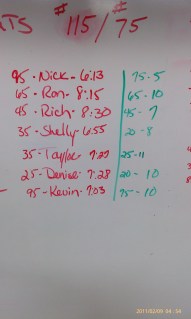 # #
RTS 115/75
95 - Nick - 6:13 75-5
65 - Ron - 8:15 65-10
45 - Rich - 8:30 45-7
35 - Shelly - 6:55 20-8
35 - Taylor 7:27 25-11
25 - Denise 7:28 20-10
95 - Kevin 7:03 75-10
2011/02/09